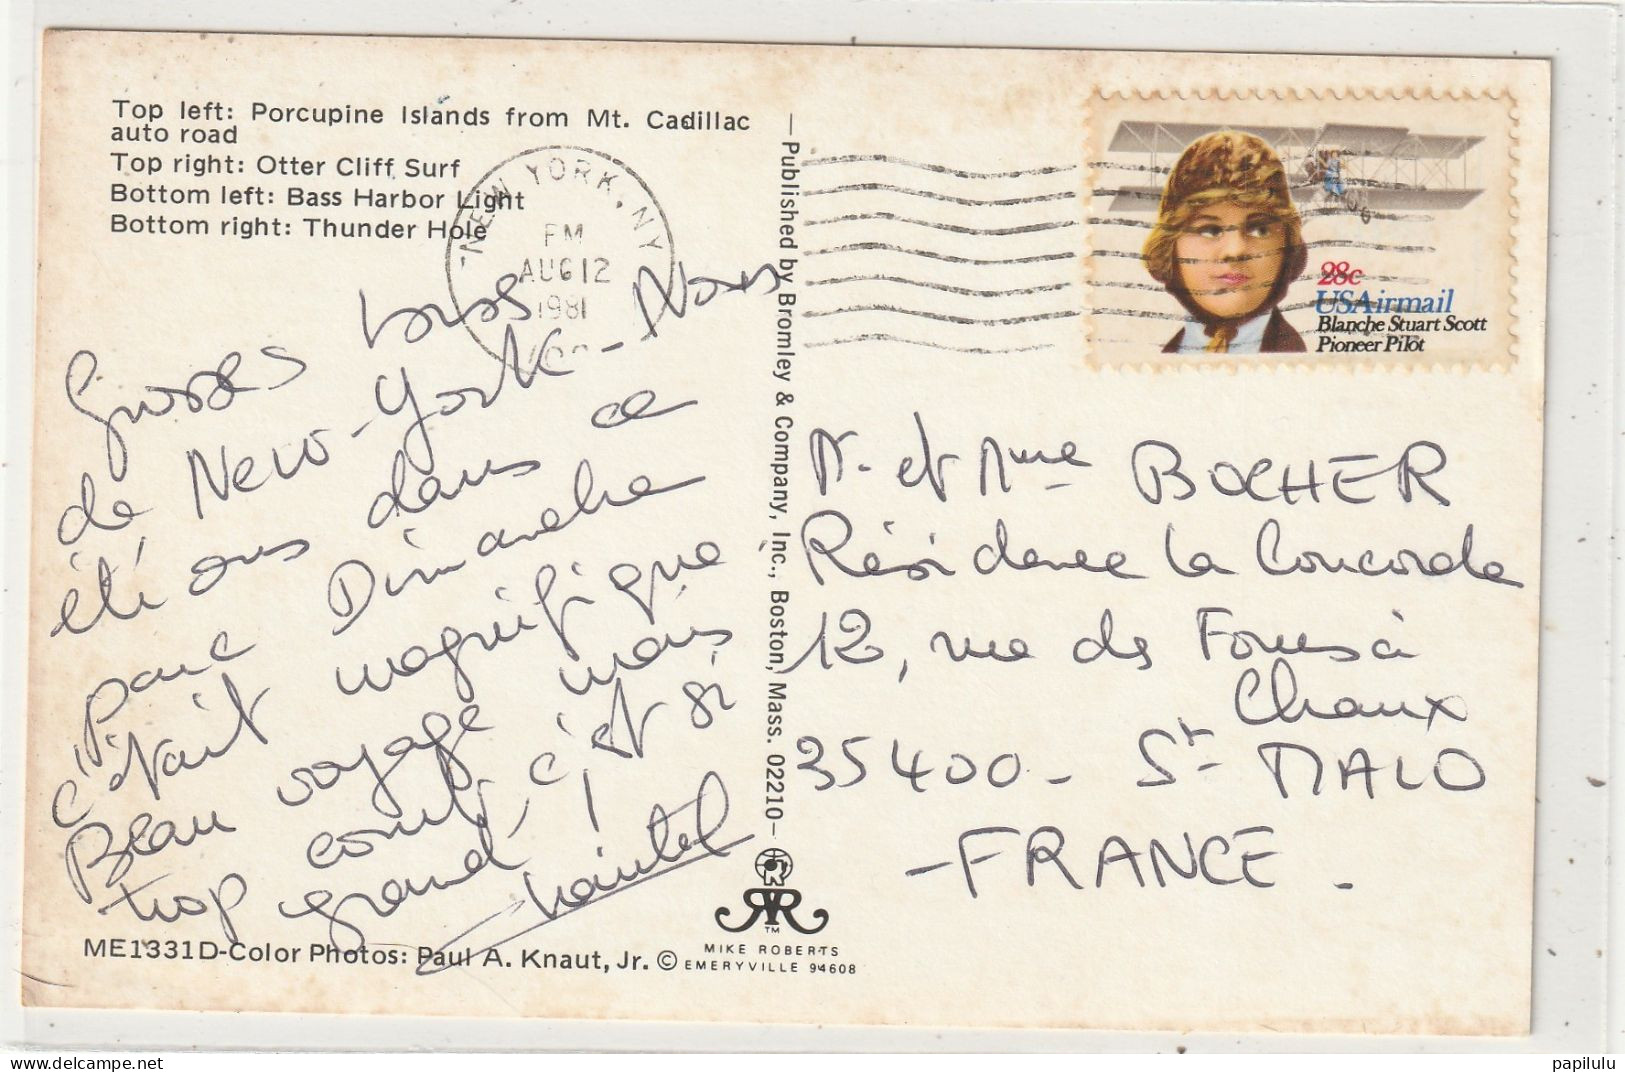 Top left: Porcupine Islands from Mt. Cadillac
auto road
Top right: Otter Cliff Surf
Bottom left: Bass Harbor Light
Bottom right: Thunder Hole
NEW YORK, NY
PM
AUG 12
1981
28c
USAirmail
Blanche Stuart Scott
Pioneer Pilot
Grosses bises
de New-York - Nous
été ons dans ce
parc Dimanche
c'était magnifique
Beau voyage mais
trop court, c'est si
grand!
—Published by Bromley & Company, Inc., Boston, Mass. 02210—
M. et Mme BOCHER
Résidence la Concorde
12, rue de Fours à
Chaux
35400 - St MALO
- FRANCE.
ME1331D-Color Photos: Paul A. Knaut, Jr. ©
TM
MIKE ROBERTS
EMERYVILLE 94608
papilulu